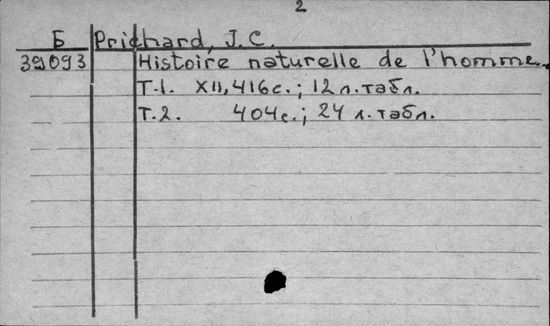 2
Б Prichard, J.C.
39093 Histoire naturelle de l'homme.
Т.1. XII, 416с.; 12 л.табл.
Т.2. 404с.; 24 л.табл.